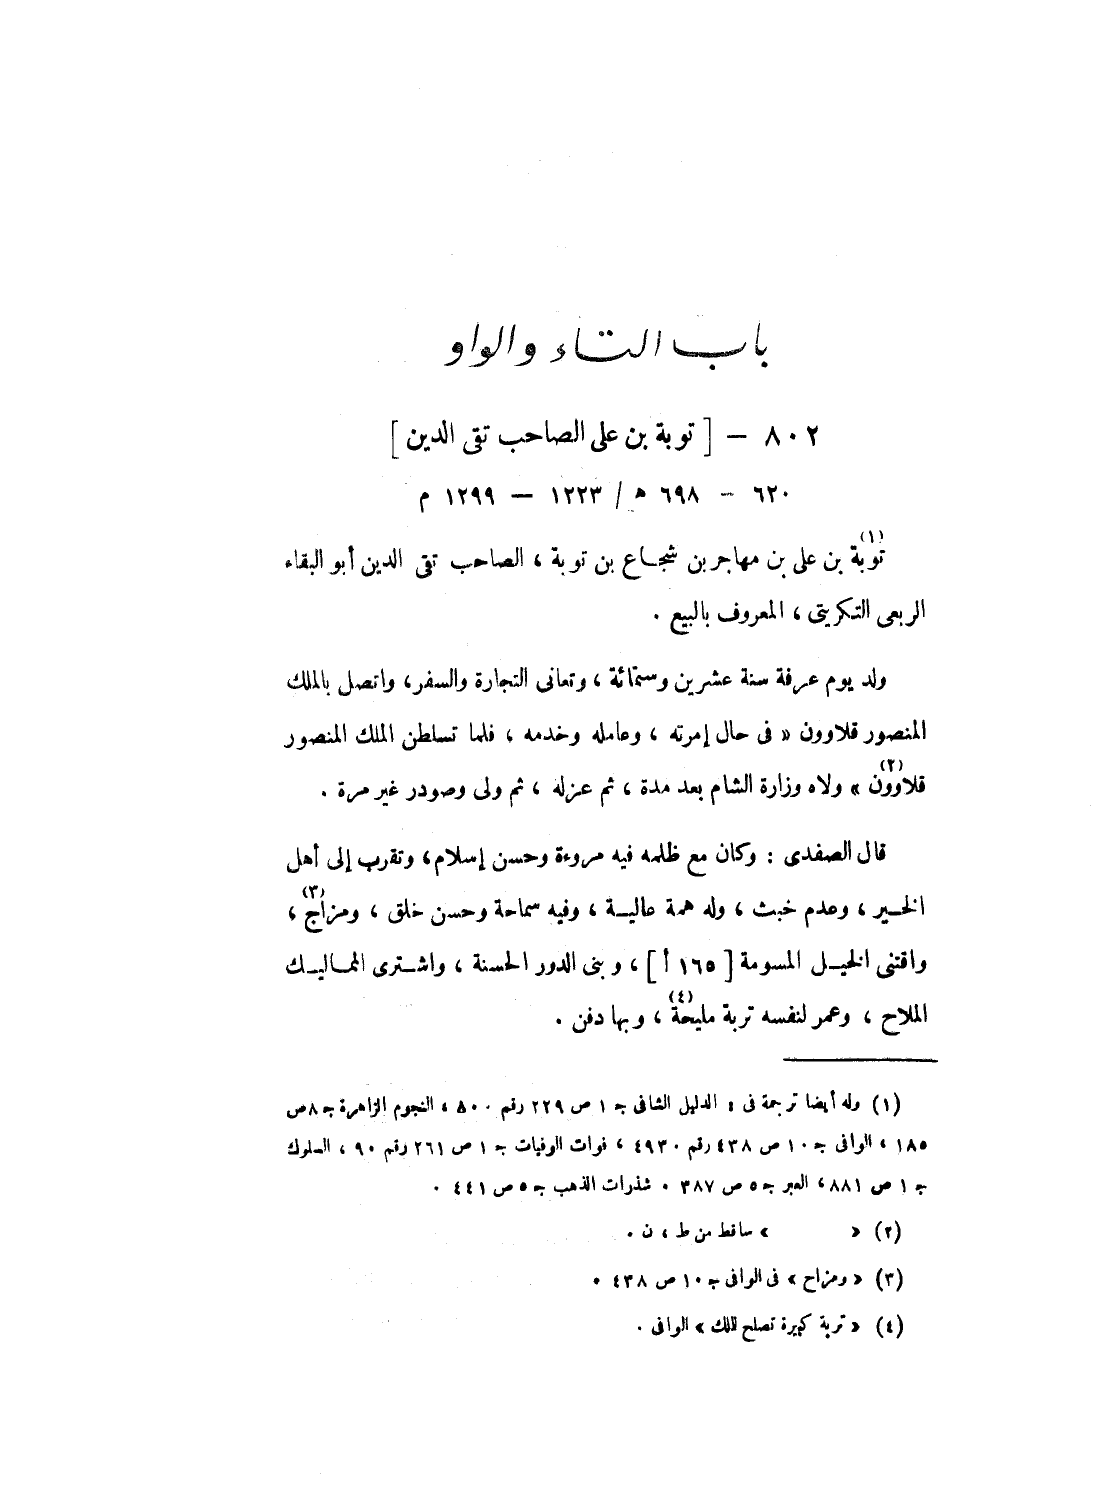 باب التاء والواو
٨٠٢ – [ توبة بن على الصاحب تقى الدين ]
٦٢٠ – ٦٩٨ هـ / ١٢٢٣ – ١٢٩٩ م
توبة (١) بن على بن مهاجر بن شجاع بن توبة ، الصاحب تقى الدين أبو البقاء
الربعى التكريتى ، المعروف بالبيع .
ولد يوم عرفة سنة عشرين وستمائة ، وتعانى التجارة والسفر ، واتصل بالملك
المنصور قلاوون « فى حال إمرته ، وعامله وخدمه ، فلما تسلطن الملك المنصور
قلاوون » (٢) ولاه وزارة الشام بعد مدة ، ثم عزله ، ثم ولى وصودر غير مرة .
قال الصفدى : وكان مع ظلمه فيه مروءة وحسن إسلام ، وتقرب إلى أهل
الخير ، وعدم خبث ، وله همة عالية ، وفيه سماحة وحسن خلق ، ومزاج (٣) ،
واقتنى الخيل المسومة [ ١٦٥ أ ] ، وبنى الدور الحسنة ، واشترى المماليك
الملاح ، وعمر لنفسه تربة مليحة (٤) ، وبها دفن .
(١) وله أيضا ترجمة فى : الدليل الشافى جـ ١ ص ٢٢٩ رقم ٨٠٠ ، النجوم الزاهرة جـ ٨ ص
١٨٥ ، الوافى جـ ١٠ ص ٤٣٨ رقم ٤٩٣٠ ، فوات الوفيات جـ ١ ص ٢٦١ رقم ٩٠ ، السلوك
جـ ١ ص ٨٨١ ، العبر جـ ٥ ص ٣٨٧ . شذرات الذهب جـ ٥ ص ٤٤١ .
(٢) « » ساقط من ط ، ن .
(٣) « ومزاح » فى الوافى جـ ١٠ ص ٤٣٨ .
(٤) « تربة كبيرة تصلح للملك » الوافى .